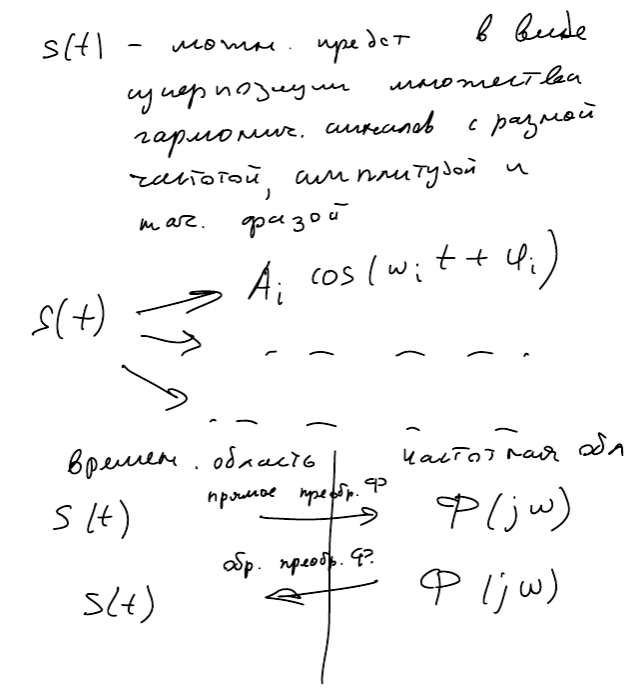 s(t) – можн. предст в виде
суперпозиции множества
гармонич. сигналов с разной
частотой, амплитудой и
нач. фазой
A_i cos(ω_i t + φ_i)
s(t)
Времен. область частотная обл
прямое преобр. Ф
S(t) Ф(jω)
обр. преобр. Ф.
S(t) Ф(jω)